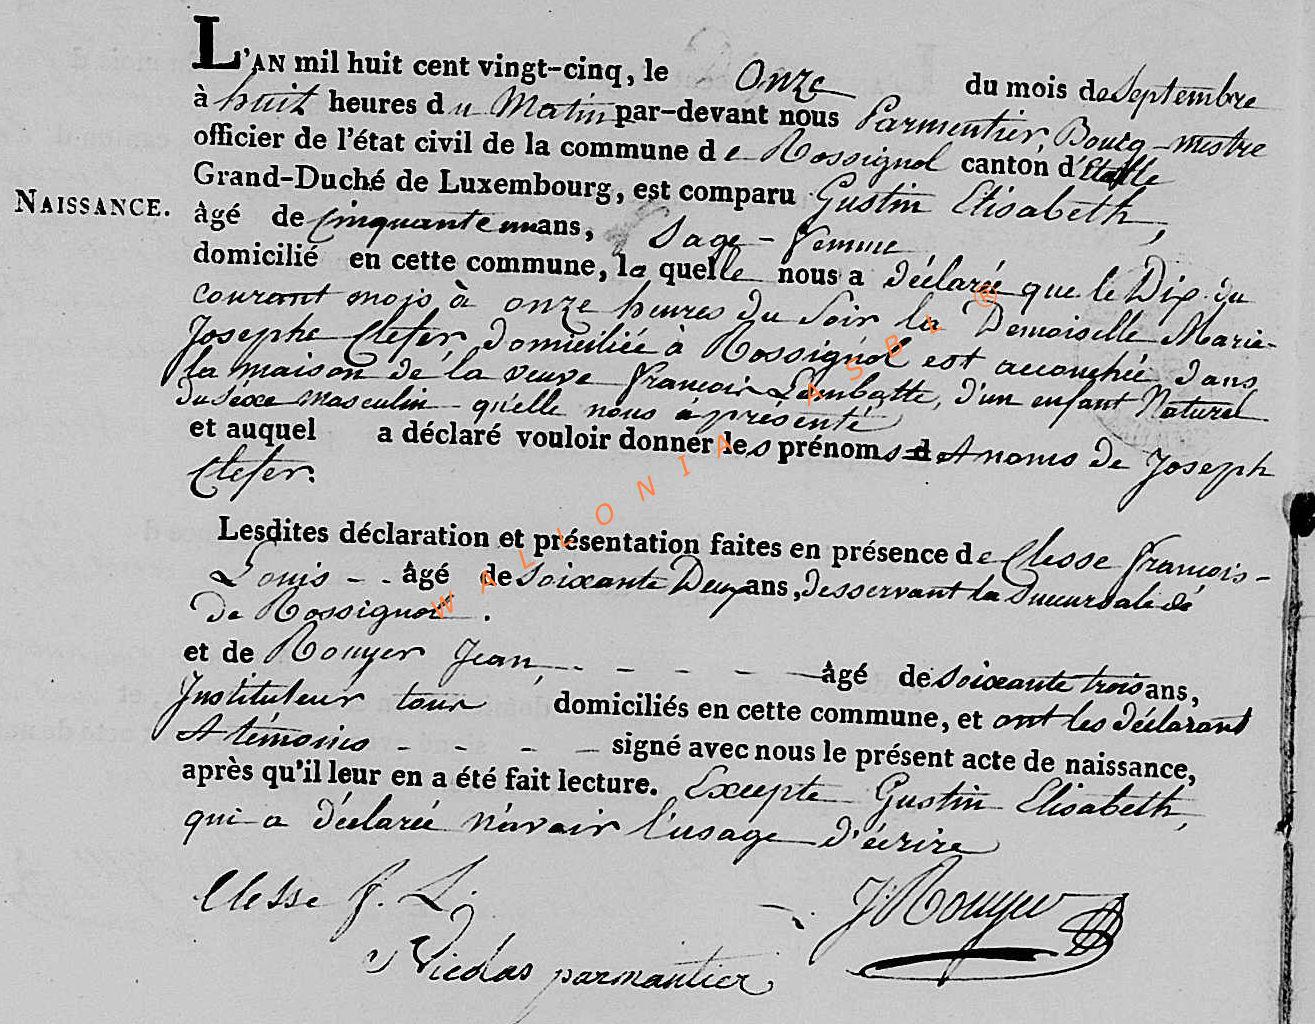 L'AN mil huit cent vingt-cinq, le Onze du mois de Septembre
à huit heures du Matin par-devant nous Parmentier, Bourg-mestre
officier de l'état civil de la commune de Rossignol canton d'Etalle
Grand-Duché de Luxembourg, est comparu Gustin Elisabeth,
NAISSANCE.
âgé de Cinquante un ans, Sage-femme
domicilié en cette commune, la quelle nous a déclaré que le Dix du
courant mois à onze heures du Soir la Demoiselle Marie-
Josephe Clefer domiciliée à Rossignol est accouchée dans
la maison de la veuve françois Lambotte, d'un enfant Naturel
du séxe masculin qu'elle nous à présenté
et auquel a déclaré vouloir donner les prénoms et noms de Joseph
Clefer.
Lesdites déclaration et présentation faites en présence de Clesse françois-
Louis - - âgé de Soixante Deux ans, desservant la Succursale de
de Rossignol.
et de Rouyer Jean, - - - - - âgé de Soixante trois ans,
Instituteur tous domiciliés en cette commune, et ont les déclarant
et témoins - - - - signé avec nous le présent acte de naissance,
après qu'il leur en a été fait lecture. Excepté Gustin Elisabeth,
qui a déclarée n'avoir l'usage d'écrire
Clesse f. L.
J: Rouyer
Nicolas parmantier
WALLONIA ASBL ®